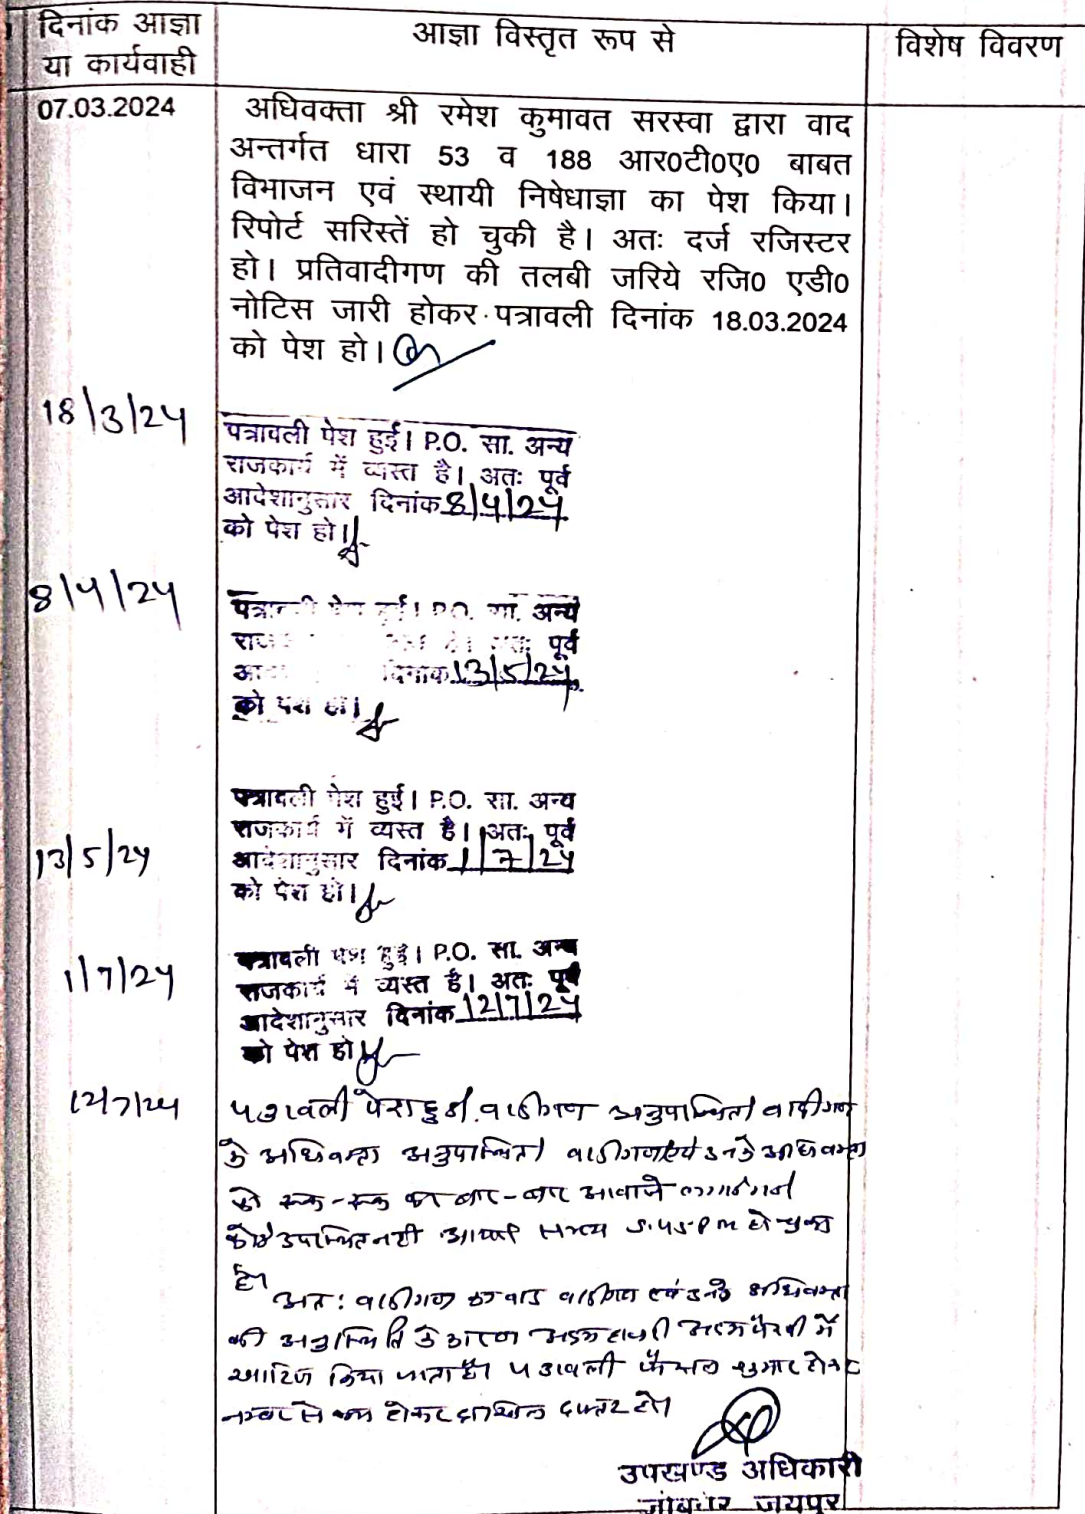 दिनांक आज्ञा
या कार्यवाही
आज्ञा विस्तृत रूप से
विशेष विवरण
07.03.2024
अधिवक्ता श्री रमेश कुमावत सरस्वा द्वारा वाद
अन्तर्गत धारा 53 व 188 आर0टी0ए0 बाबत
विभाजन एवं स्थायी निषेधाज्ञा का पेश किया।
रिपोर्ट सरिस्तें हो चुकी है। अतः दर्ज रजिस्टर
हो। प्रतिवादीगण की तलबी जरिये रजि0 एडी0
नोटिस जारी होकर पत्रावली दिनांक 18.03.2024
को पेश हो।
18/3/24
पत्रावली पेश हुई। P.O. सा. अन्य
राजकार्य में व्यस्त है। अतः पूर्व
आदेशानुसार दिनांक 8/4/24
को पेश हो।
8/4/24
पत्रावली पेश हुई। P.O. सा. अन्य
राज है। अतः पूर्व
आ दिनांक 13/5/24
को पेश हो।
13/5/24
पत्रावली पेश हुई। P.O. सा. अन्य
राजकार्य में व्यस्त है। अतः पूर्व
आदेशानुसार दिनांक 1/7/24
को पेश हो।
1/7/24
पत्रावली पेश हुई। P.O. सा. अन्य
राजकार्य में व्यस्त है। अतः पूर्व
आदेशानुसार दिनांक 12/7/24
को पेश हो।
12/7/24
पत्रावली पेश हुई। वादीगण अनुपस्थित। वादीगण
के अधिवक्ता अनुपस्थित। वादीगण एवं उनके अधिवक्ता
को रूक-रूक कर बार-बार आवाजे लगाई गई
कोई उपस्थित नही आया। समय 5.45 PM हो चुका
है।
अतः वादीगण का वाद वादीगण एवं उनके अधिवक्ता
की अनुपस्थिति के कारण अदम हाजरी अदम पैरवी में
खारिज किया जाता है। पत्रावली फैसल शुमार होकर
नम्बर से कम होकर दाखिल दफ्तर हो।
उपखण्ड अधिकारी
जोबनेर जयपुर